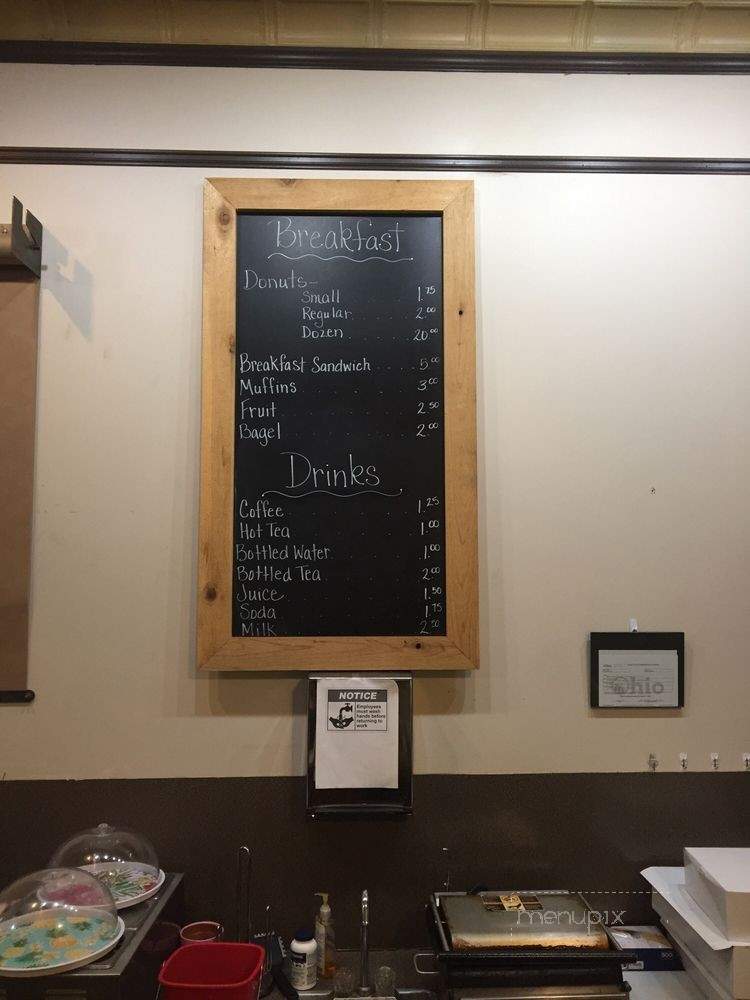 Breakfast
Donuts-
Small . . . 1.75
Regular . . . 2.00
Dozen . . . 20.00
Breakfast Sandwich . . . 5.00
Muffins . . . 3.00
Fruit . . . 2.50
Bagel . . . 2.00
Drinks
Coffee . . . 1.25
Hot Tea . . . 1.00
Bottled Water . . . 1.00
Bottled Tea . . . 2.00
Juice . . . 1.50
Soda . . . 1.75
Milk . . . 2.50
NOTICE
Employees
must wash
hands before
returning to
work
Ohio
menupix